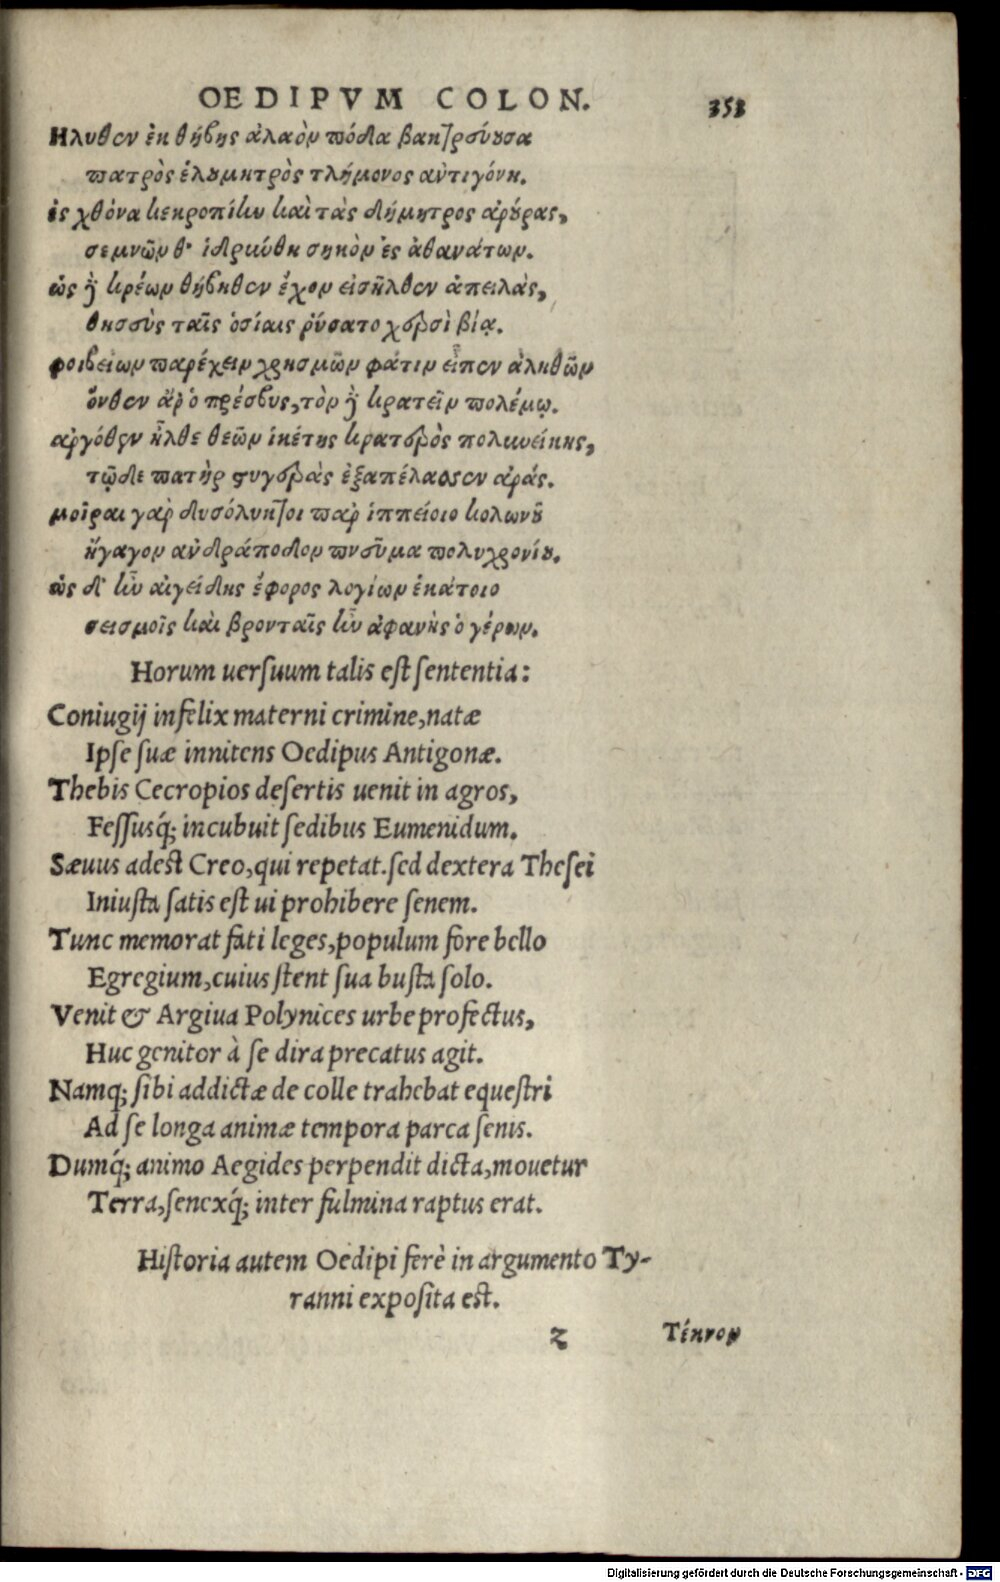 OEDIPVM COLON. 353
Ηλυθεν ἐκ θήβης ἀλαὸν πόδα βακτρεύουσα
πατρὸς ὁλουμητρὸς τλήμονος ἀντιγόνη.
ἐς χθόνα κεκροπίην καὶ τὰς δήμητρος ἀρούρας,
σεμνῶν θ' ἱδρύνθη σηκὸν ἐς ἀθανάτων.
ὡς ἢ κρέων θήβηθεν ἔχον εἰσῆλθεν ἀπειλὰς,
θησεὺς ταῖς ὁσίαις ῥύσατο χερσὶ βίᾳ.
φοιβείων παρέχειν χρησμῶν φάτιν εἶπεν ἀληθῶν
ἔνθεν ἂρ ὁ πρέσβυς, τὸν ἢ κρατεῖν πολέμῳ.
ἀργόθεν ἦλθε θεῶν ἱκέτης κρατερὸς πολυνείκης,
τῷδε πατὴρ στυγερὰς ἐξαπέλασεν ἀράς.
μοῖραι γὰρ δυσάλυκτοι παρ ἱππείοιο κολωνοῦ
ἤγαγον ἀνδράποδον πνεῦμα πολυχρονίου.
ὡς δ' ἦν αἰγείδης ἔφορος λογίων ἑκάτοιο
σεισμοῖς καὶ βρονταῖς ἦν ἀφανὴς ὁ γέρων.
Horum uersuum talis est sententia:
Coniugij infelix materni crimine, natæ
Ipse suæ innitens Oedipus Antigonæ.
Thebis Cecropios desertis uenit in agros,
Fessusq́; incubuit sedibus Eumenidum.
Sæuus adest Creo, qui repetat. sed dextera Thesei
Iniusta satis est ui prohibere senem.
Tunc memorat fati leges, populum fore bello
Egregium, cuius stent sua busta solo.
Venit & Argiua Polynices urbe profectus,
Huc genitor à se dira precatus agit.
Namq; sibi addictæ de colle trahebat equestri
Ad se longa animæ tempora parca senis.
Dumq́; animo Aegides perpendit dicta, mouetur
Terra, senexq́; inter fulmina raptus erat.
Historia autem Oedipi ferè in argumento Ty-
ranni exposita est.
z Τέκνον
Digitalisierung gefördert durch die Deutsche Forschungsgemeinschaft - DFG